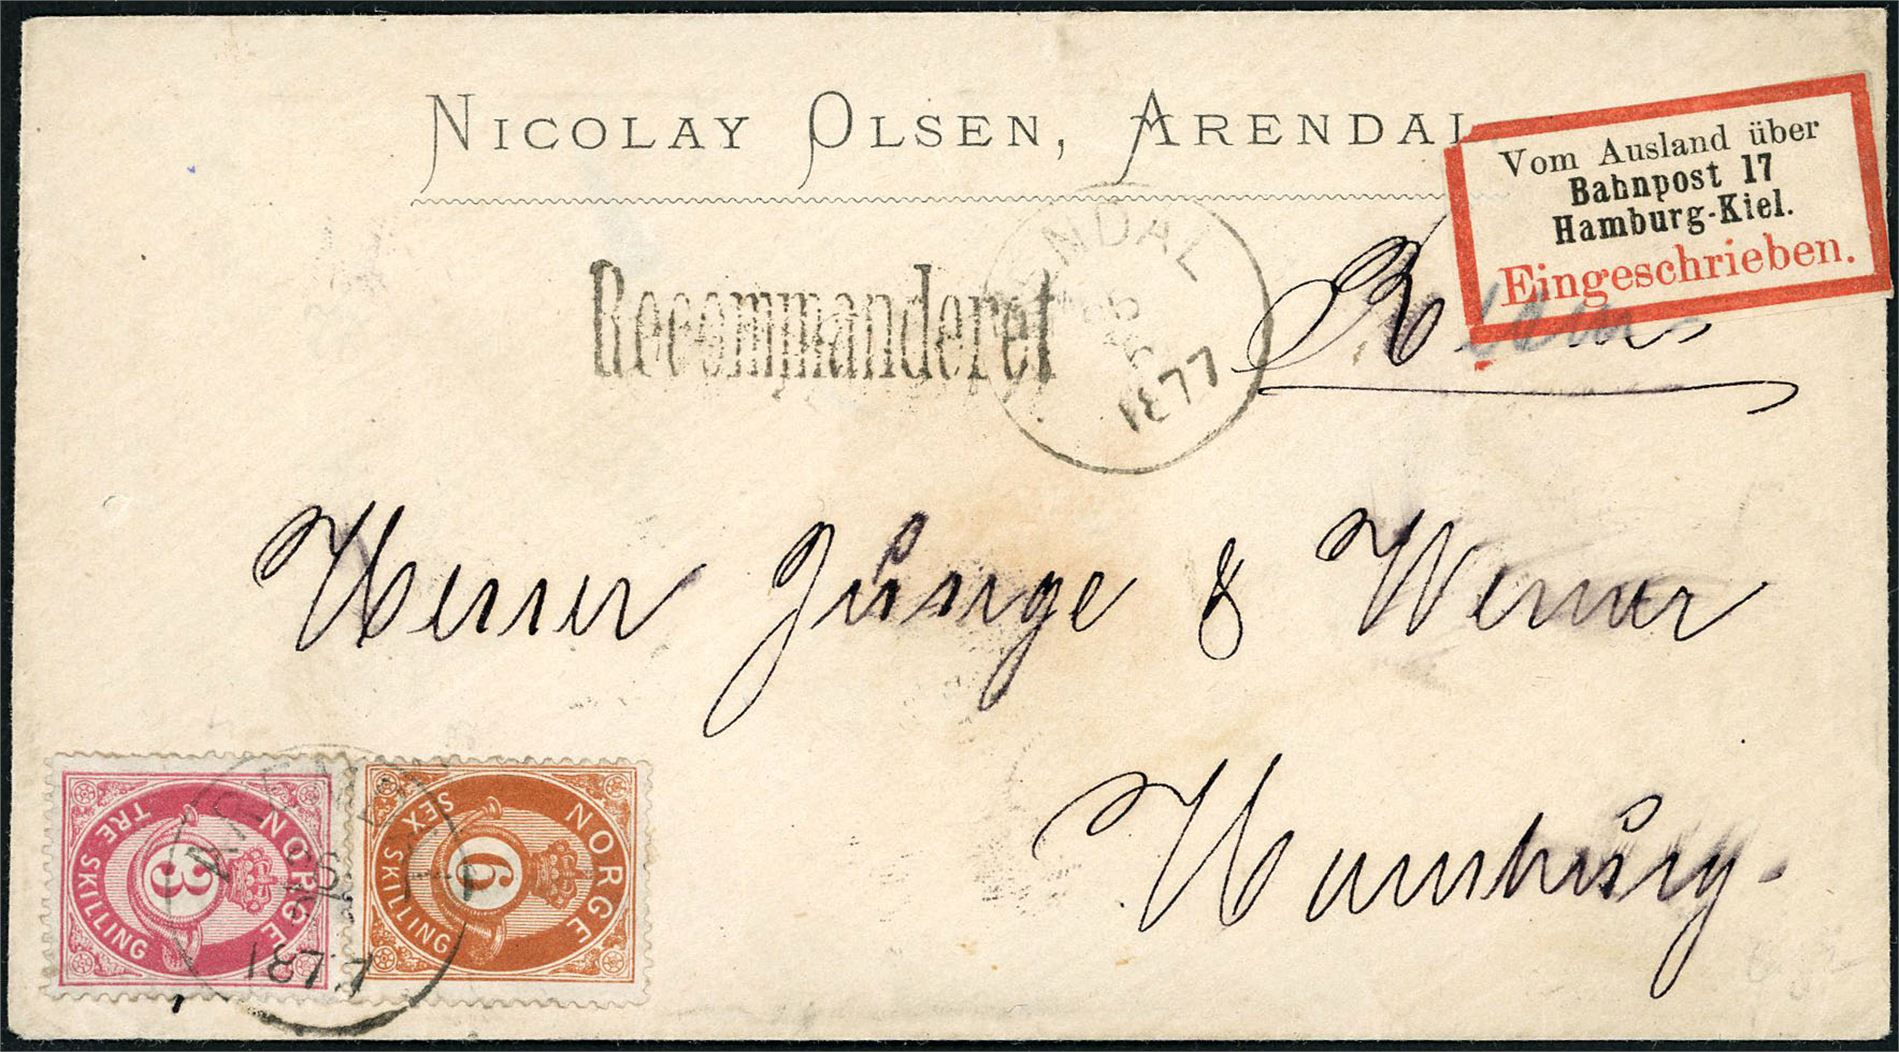 NICOLAY OLSEN, ARENDAL
Vom Ausland über
Bahnpost 17
Hamburg-Kiel.
Eingeschrieben.
Recommanderet
ENDAL
1877
Herrer Junge & Werner
Hamburg.
NORGE
3
TRE SKILLING
NORGE
6
SEX SKILLING
1877